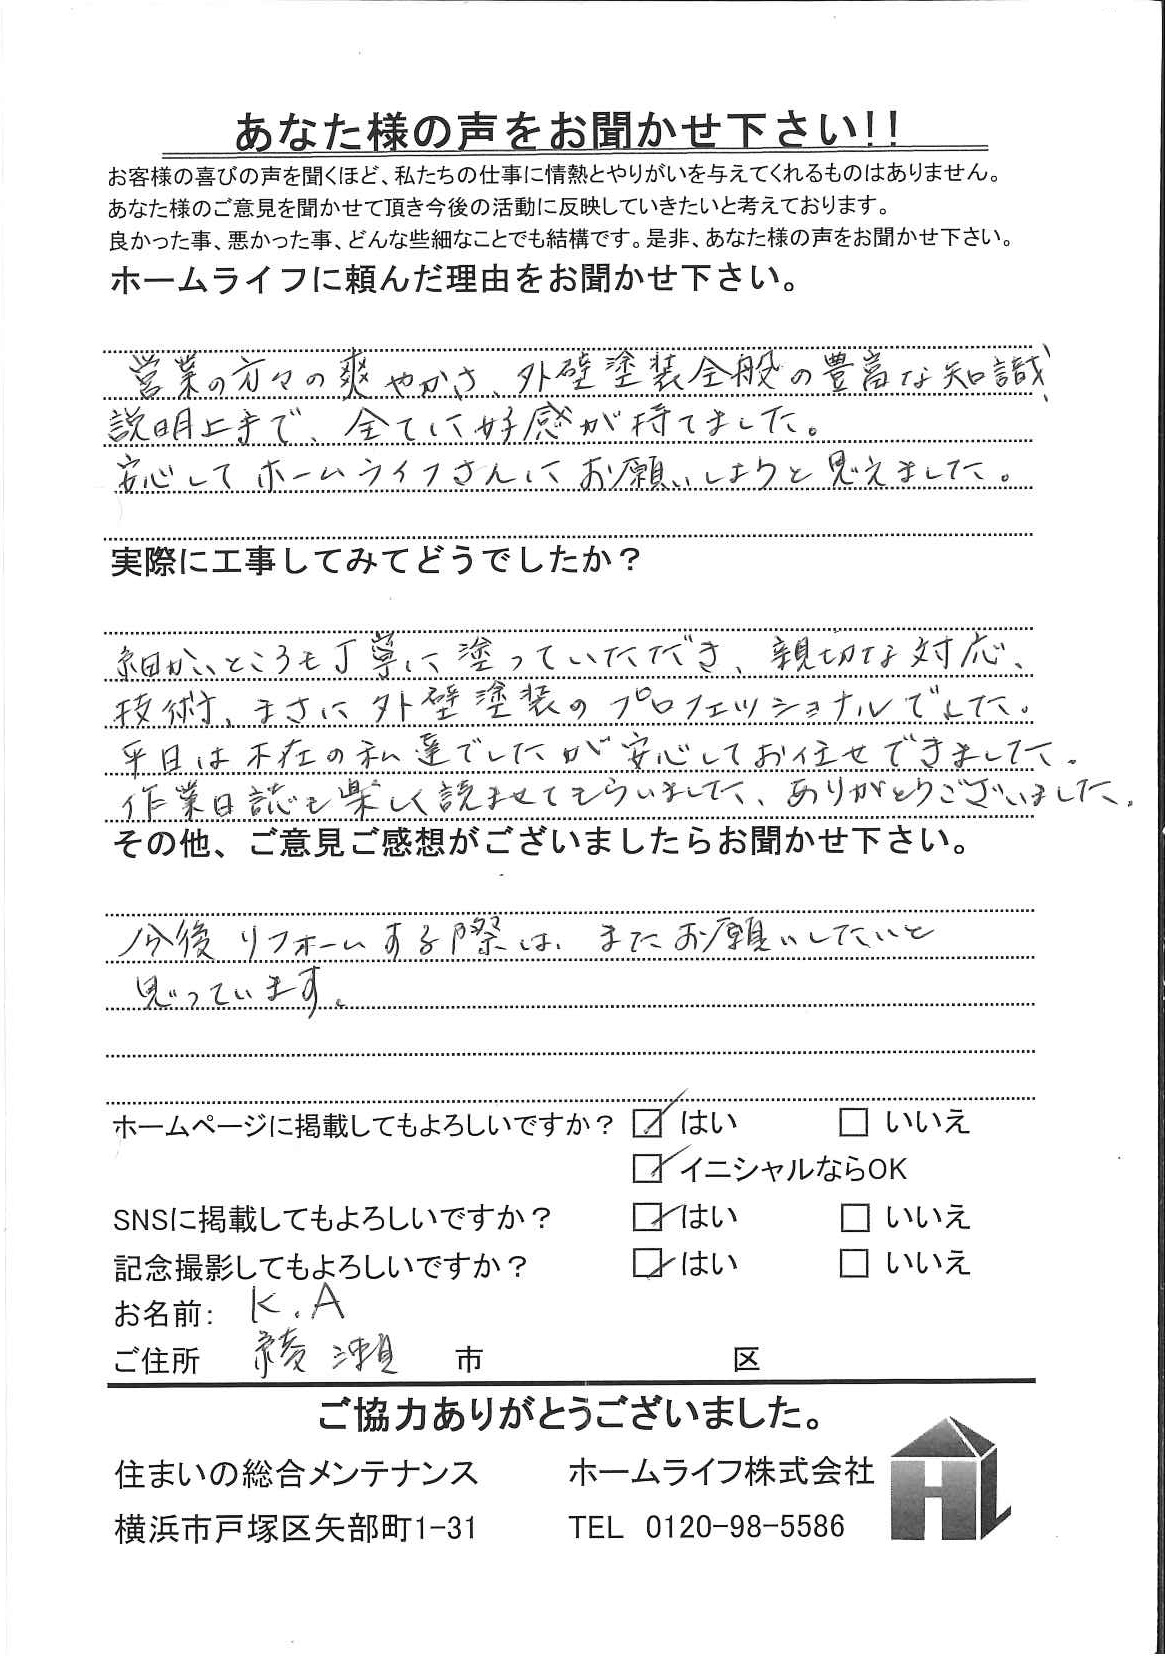 あなた様の声をお聞かせ下さい!!
お客様の喜びの声を聞くほど、私たちの仕事に情熱とやりがいを与えてくれるものはありません。
あなた様のご意見を聞かせて頂き今後の活動に反映していきたいと考えております。
良かった事、悪かった事、どんな些細なことでも結構です。是非、あなた様の声をお聞かせ下さい。
ホームライフに頼んだ理由をお聞かせ下さい。
営業の方々の爽やかさ、外壁塗装全般の豊富な知識、
説明上手で、全てに好感が持てました。
安心してホームライフさんにお願いしようと思えました。
実際に工事してみてどうでしたか?
細かいところも丁寧に塗っていただき、親切な対応、
技術、まさに外壁塗装のプロフェッショナルでした。
平日は不在の私達でしたが安心してお任せできました。
作業日誌も楽しく読ませてもらいました、ありがとうございました。
その他、ご意見ご感想がございましたらお聞かせ下さい。
今後リフォームする際は、またお願いしたいと
思っています。
ホームページに掲載してもよろしいですか? ☑ はい □ いいえ
☑ イニシャルならOK
SNSに掲載してもよろしいですか? ☑ はい □ いいえ
記念撮影してもよろしいですか? ☑ はい □ いいえ
お名前: K.A
ご住所 綾瀬 市 区
ご協力ありがとうございました。
住まいの総合メンテナンス ホームライフ株式会社
横浜市戸塚区矢部町1-31 TEL 0120-98-5586
HL